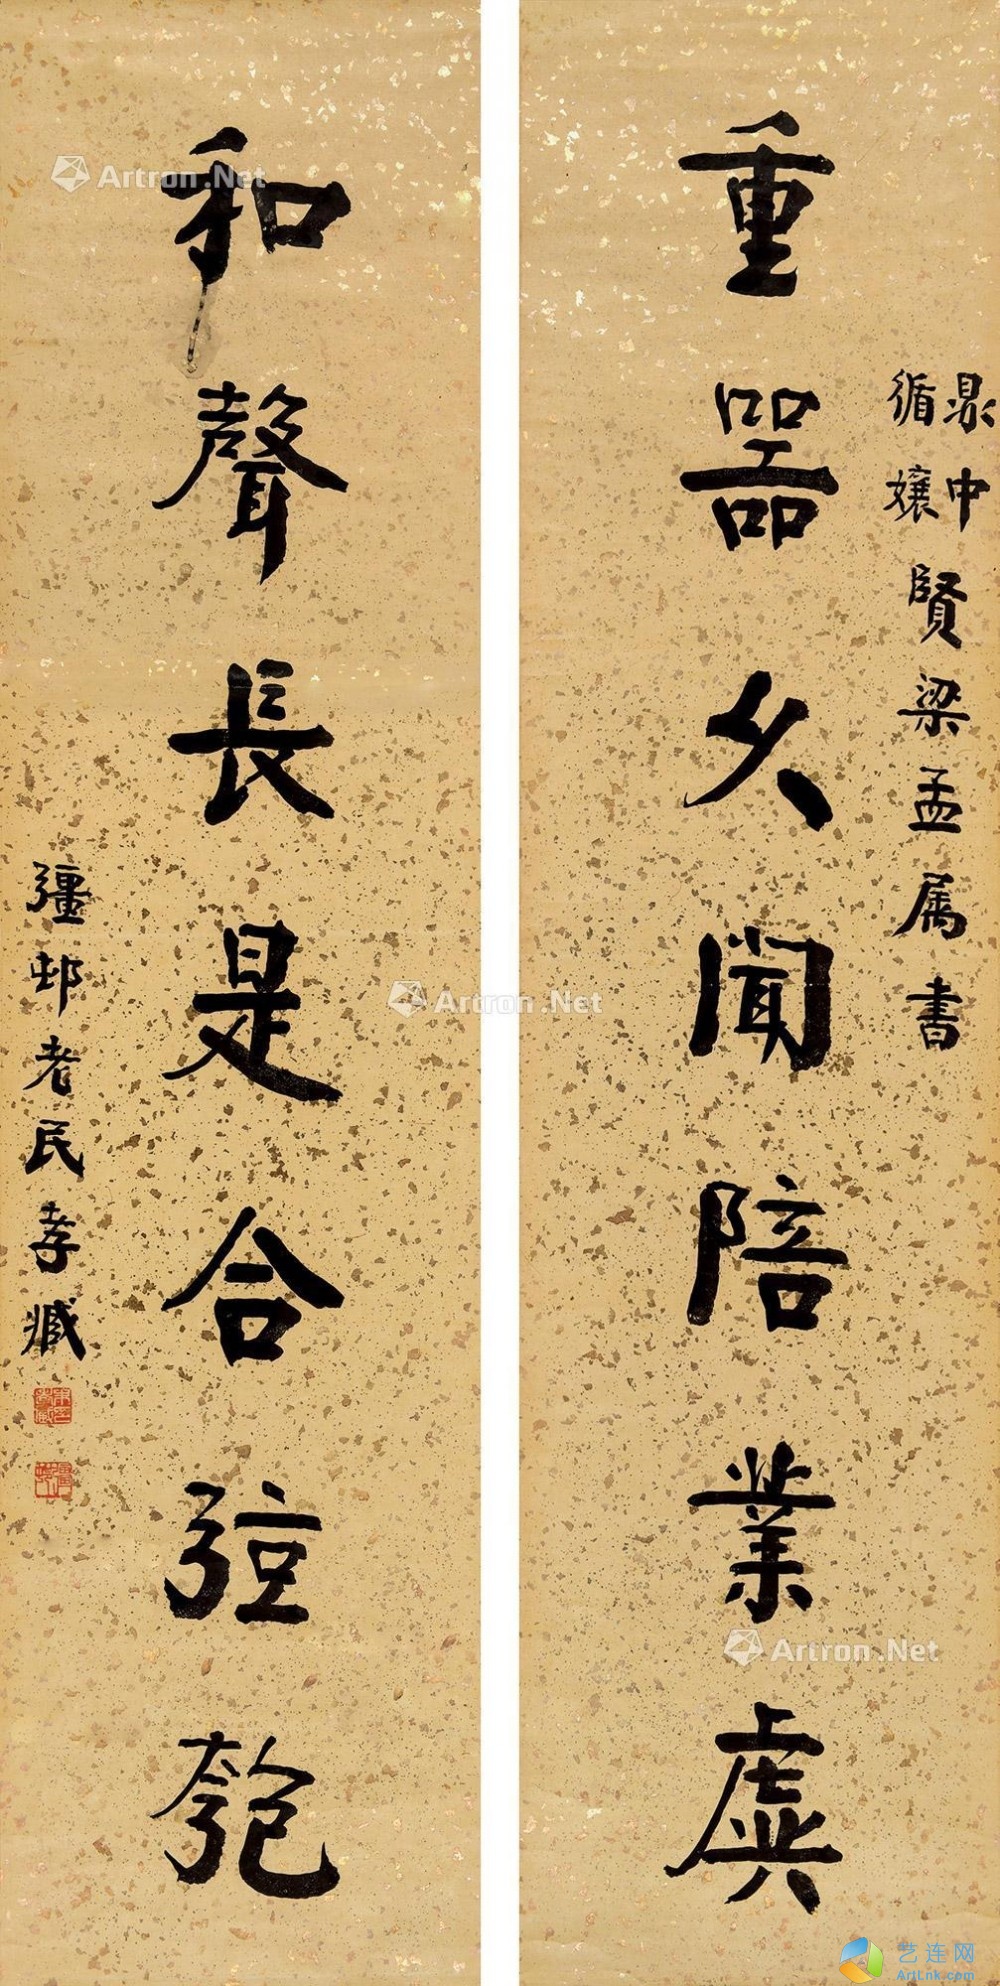 重器久聞陪業虡
鼎中
循孃
賢梁孟属書
和聲長是合弦匏
彊邨老民孝臧
Artron.Net
Artron.Net
Artron.Net
艺连网
ArtLnk.com